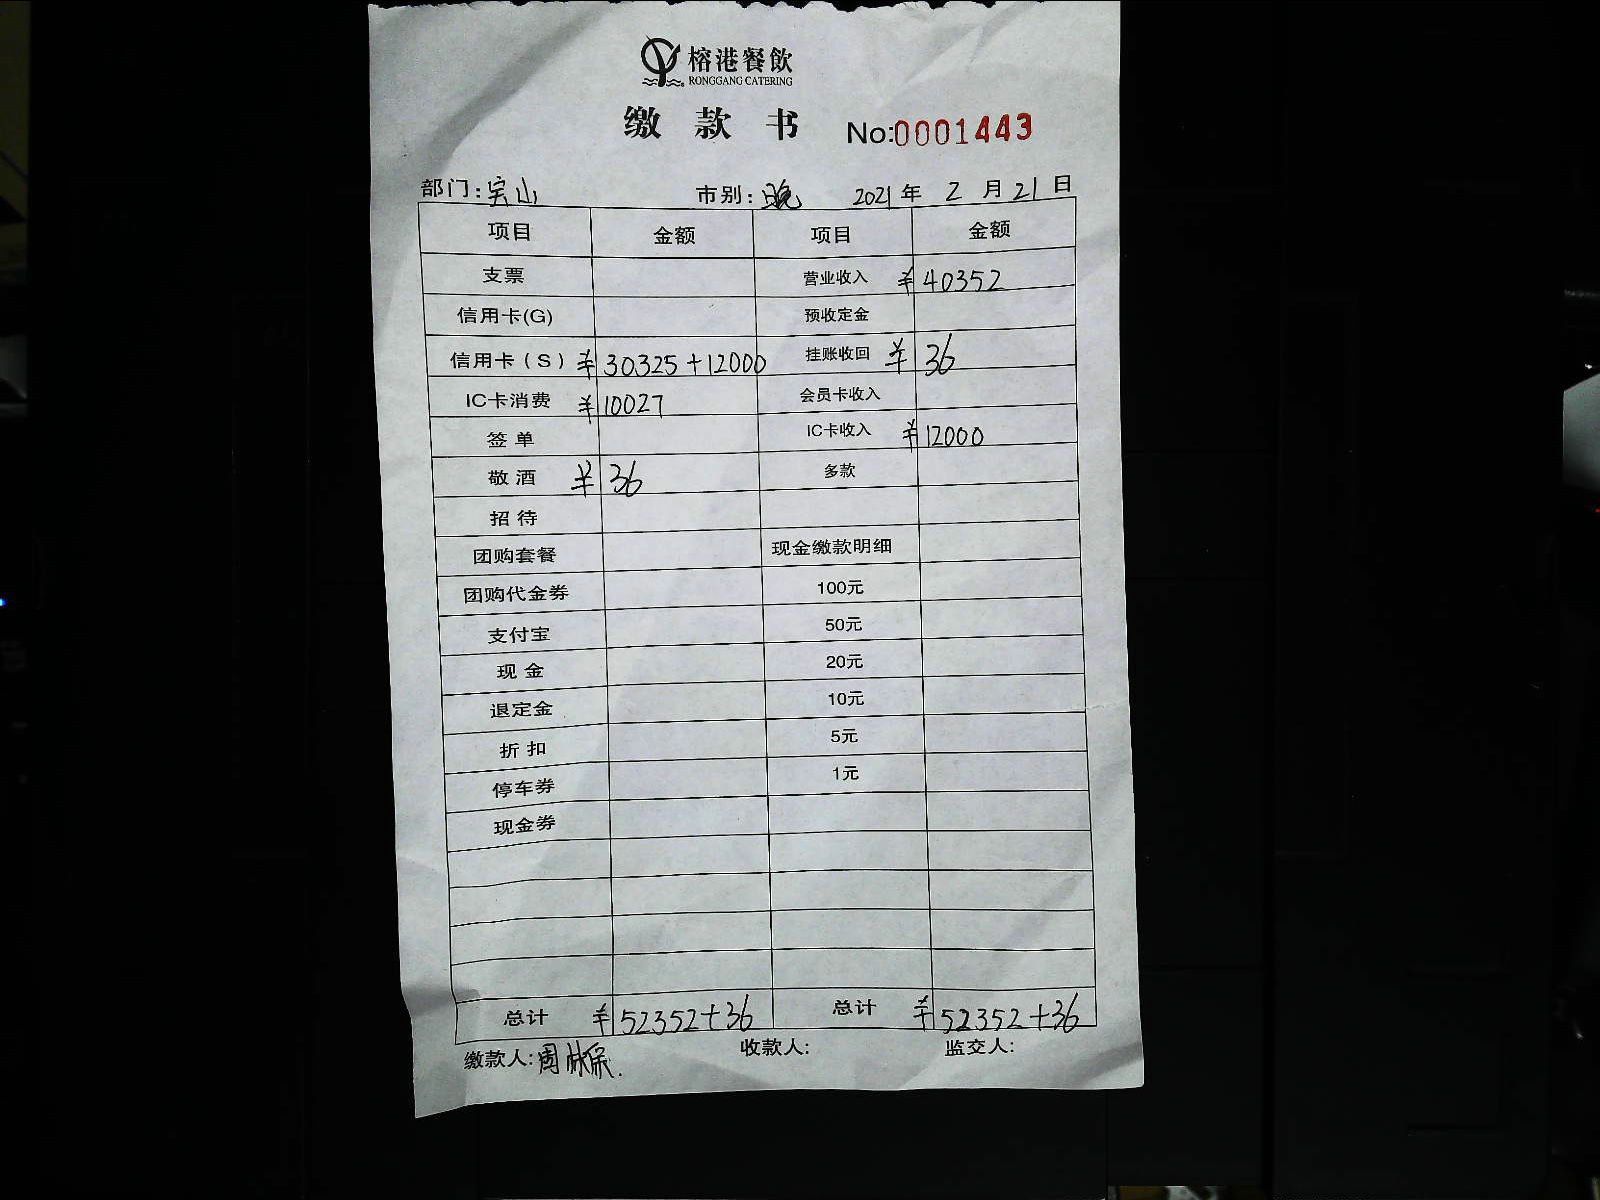 榕港餐飲
RONGGANG CATERING
缴款书 No:0001443
部门:宝山 市别:晚 2021年2月21日
项目 金额 项目 金额
支票 营业收入 ¥40352
信用卡(G) 预收定金
信用卡(S) ¥30325+12000 挂账收回 ¥36
IC卡消费 ¥10027 会员卡收入
签单 IC卡收入 ¥12000
敬酒 ¥36 多款
招待
团购套餐 现金缴款明细
团购代金券 100元
支付宝 50元
现金 20元
退定金 10元
折扣 5元
停车券 1元
现金券
总计 ¥52352+36 总计 ¥52352+36
缴款人:周 收款人: 监交人: